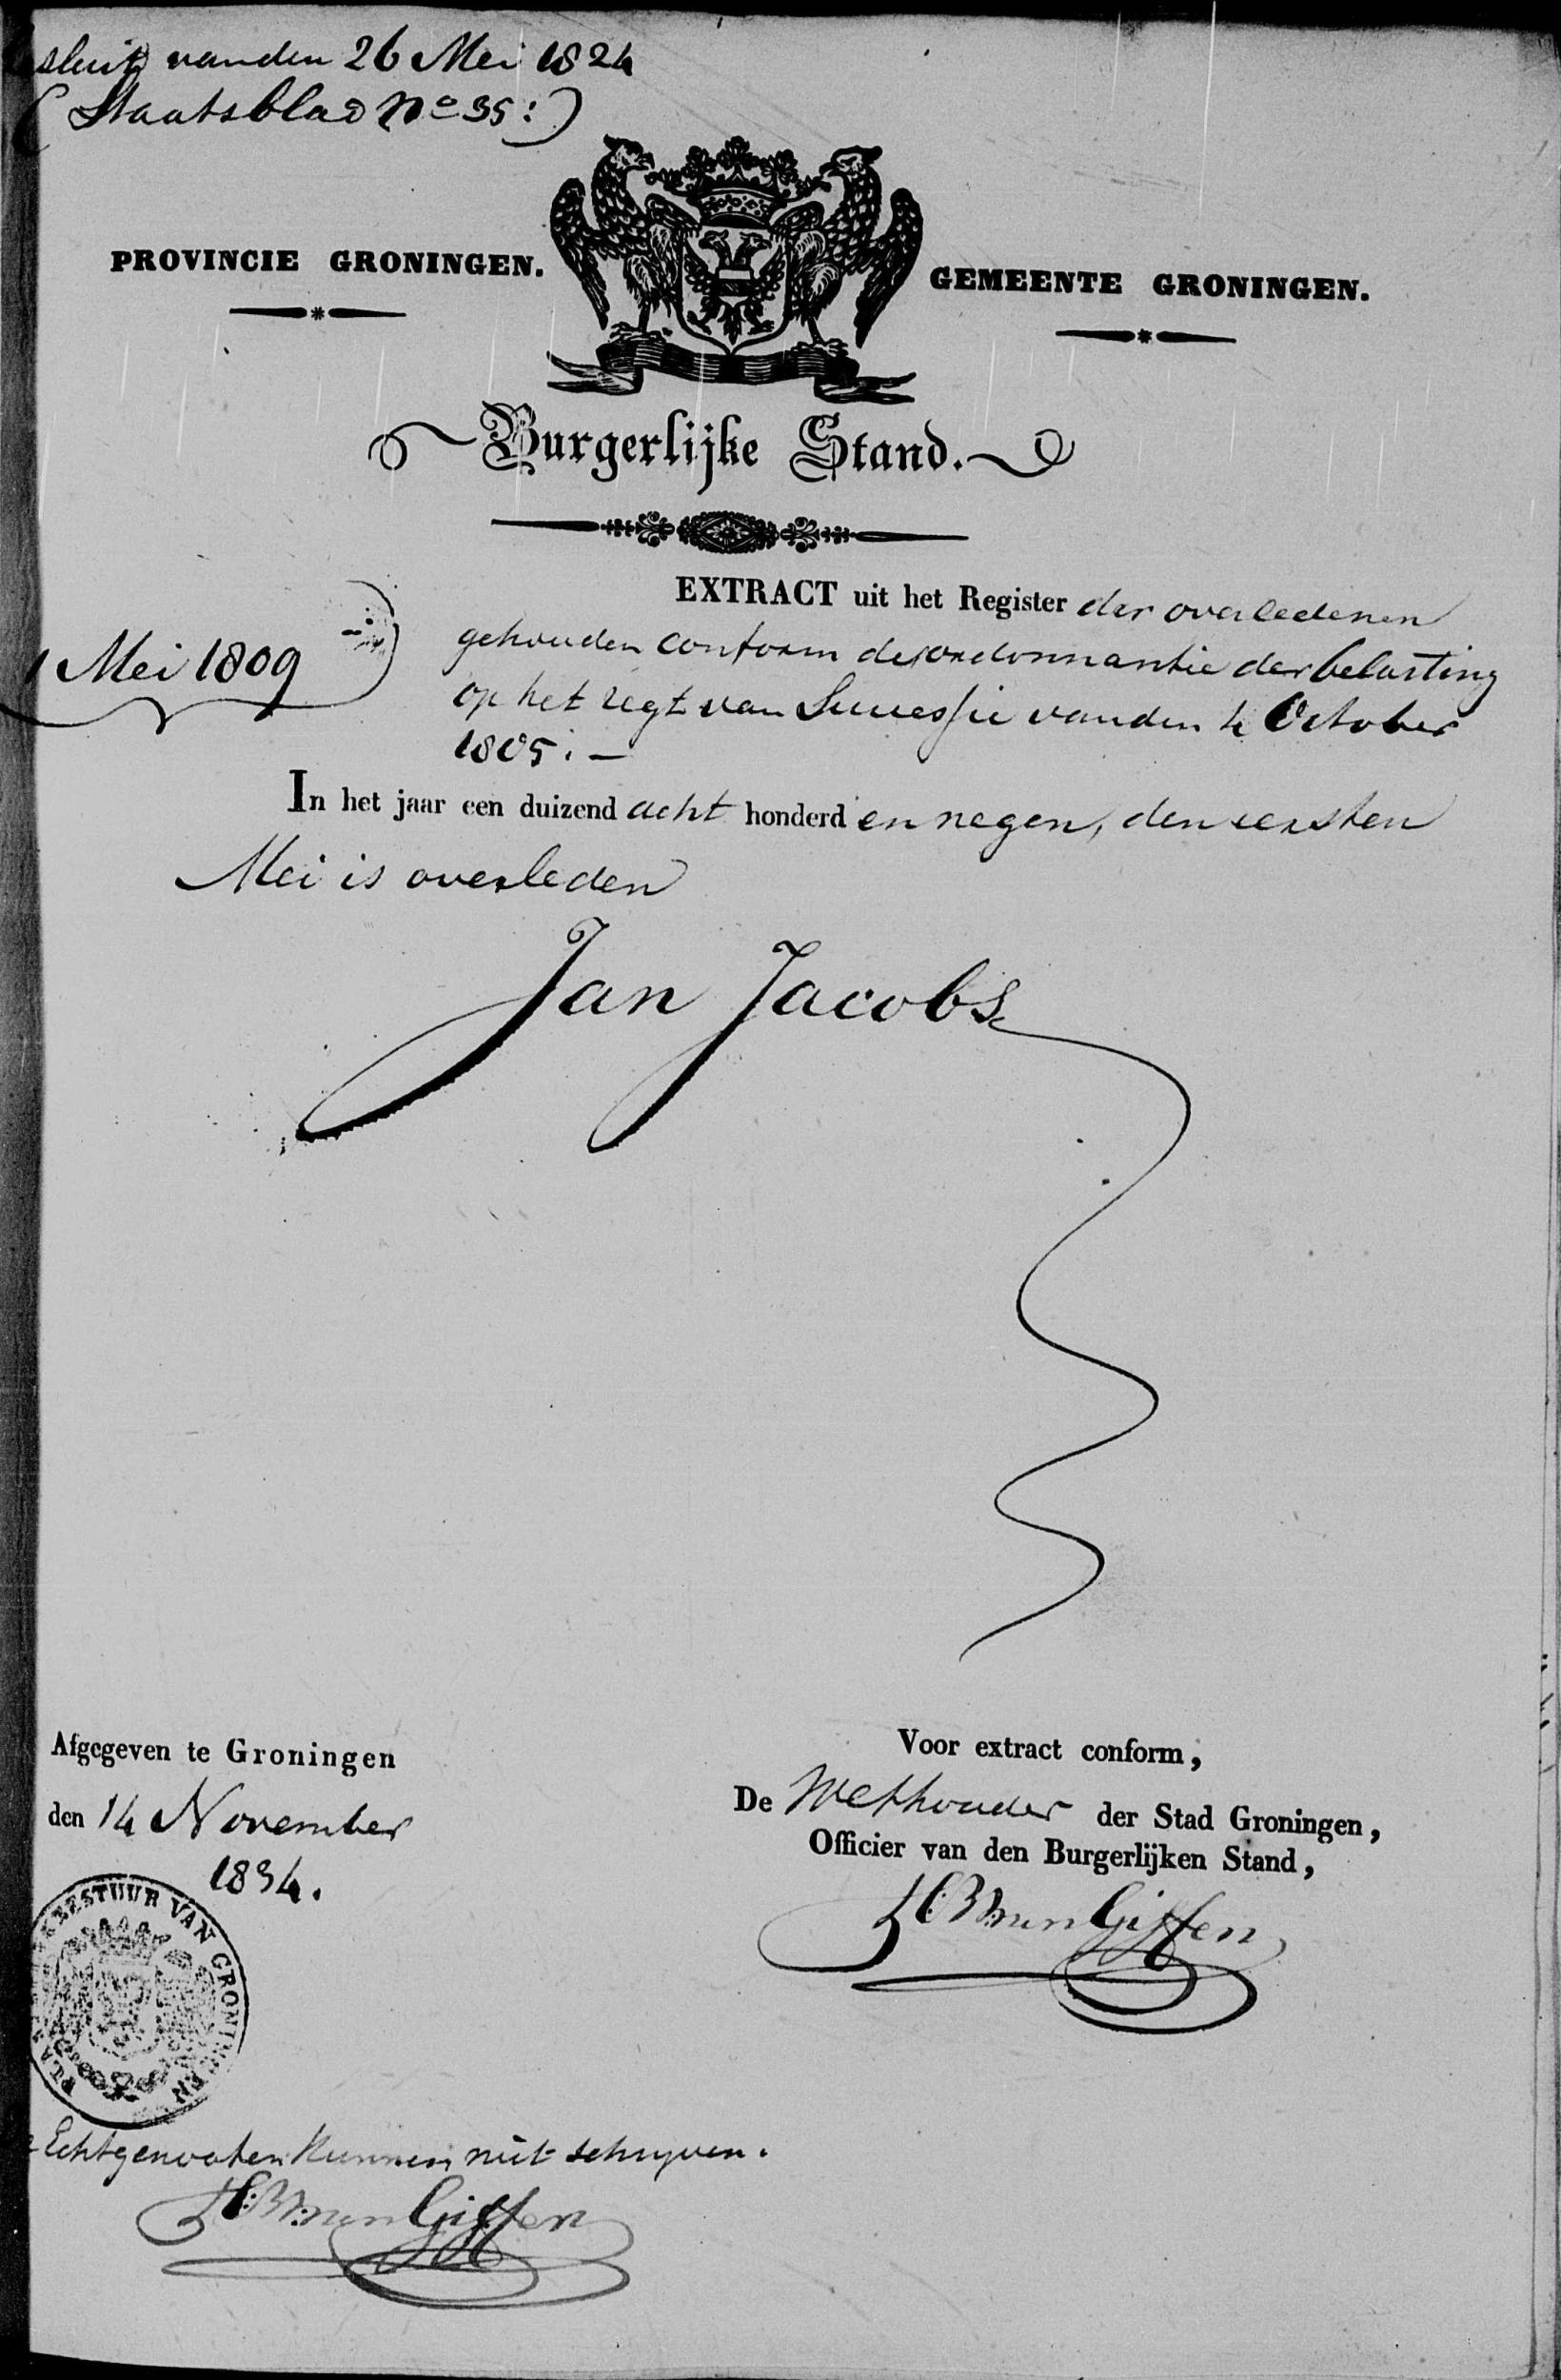 sluit vanden 26 Mei 1824
(Staatsblad No 35:)
PROVINCIE GRONINGEN.
GEMEENTE GRONINGEN.
Burgerlijke Stand.
EXTRACT uit het Register der overledenen
1 Mei 1809
gehouden conform de ordonnantie der belasting
op het regt van Successie vanden 4 October
1805.–
In het jaar een duizend acht honderd en negen, den eersten
Mei is overleden
Jan Jacobs
Afgegeven te Groningen
den 14 November
1834.
Voor extract conform,
De Wethouder der Stad Groningen,
Officier van den Burgerlijken Stand,
van Giffen
BESTUUR VAN GRONINGEN
Echtgenooten kunnen niet schryven.
van Giffen